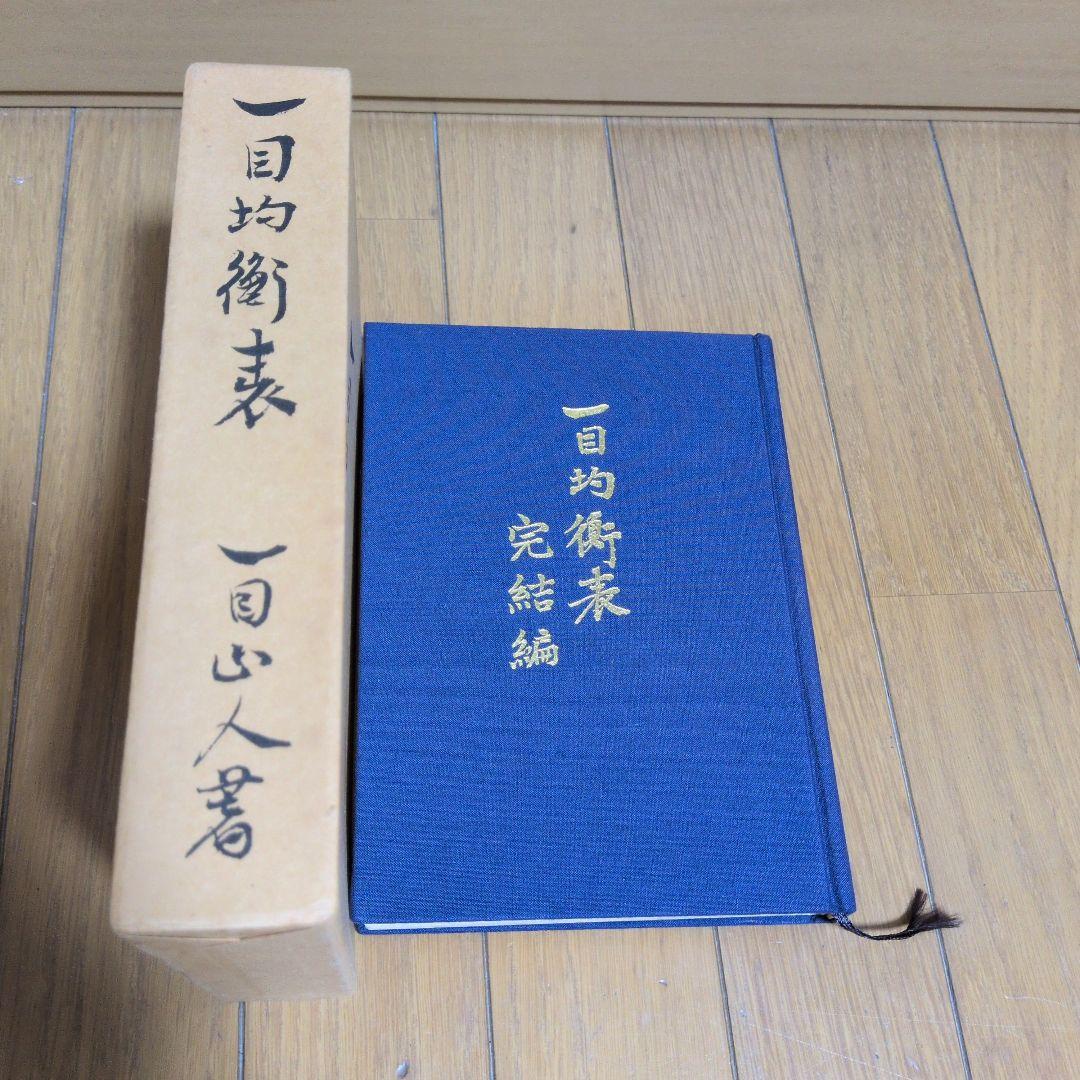 一目均衡表
一目山人著
一目均衡表
完結編